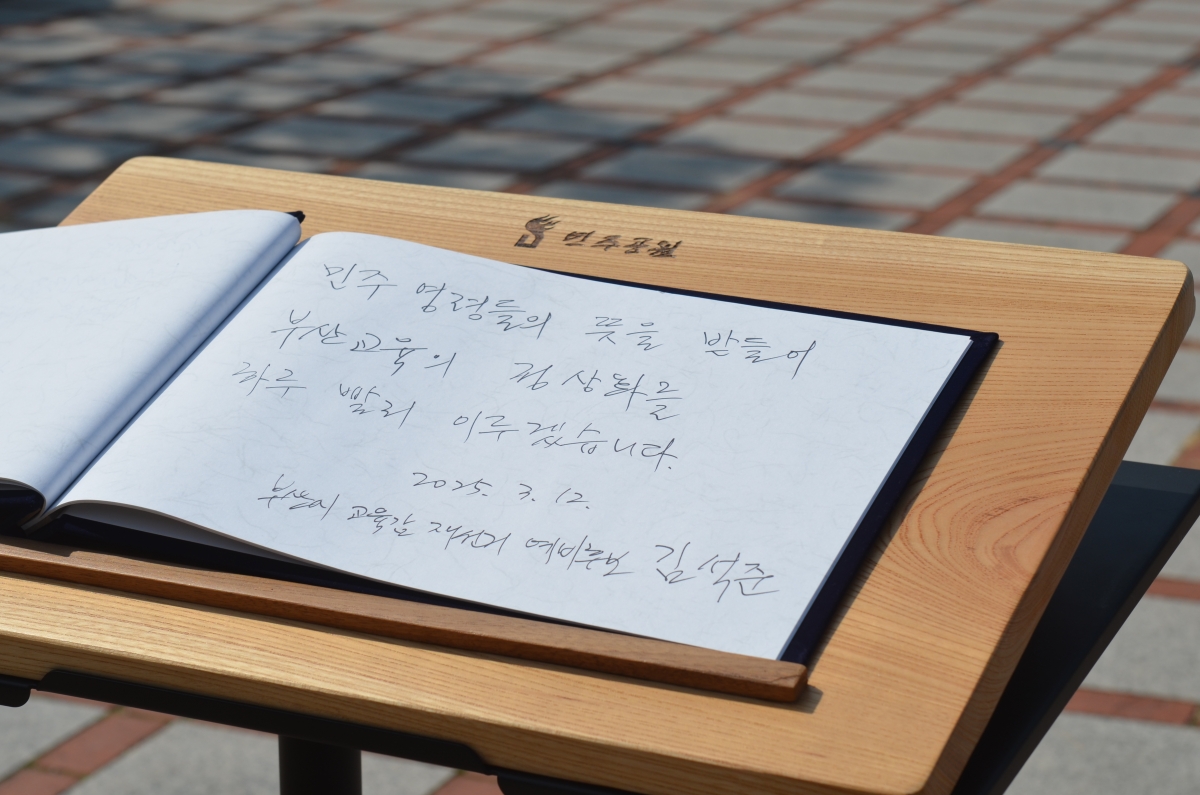 민주공원
민주 영령들의 뜻을 받들어
부산교육의 정상화를
하루 빨리 이루겠습니다.
2025. 3. 12.
부산시 교육감 재선거 예비후보 김석준